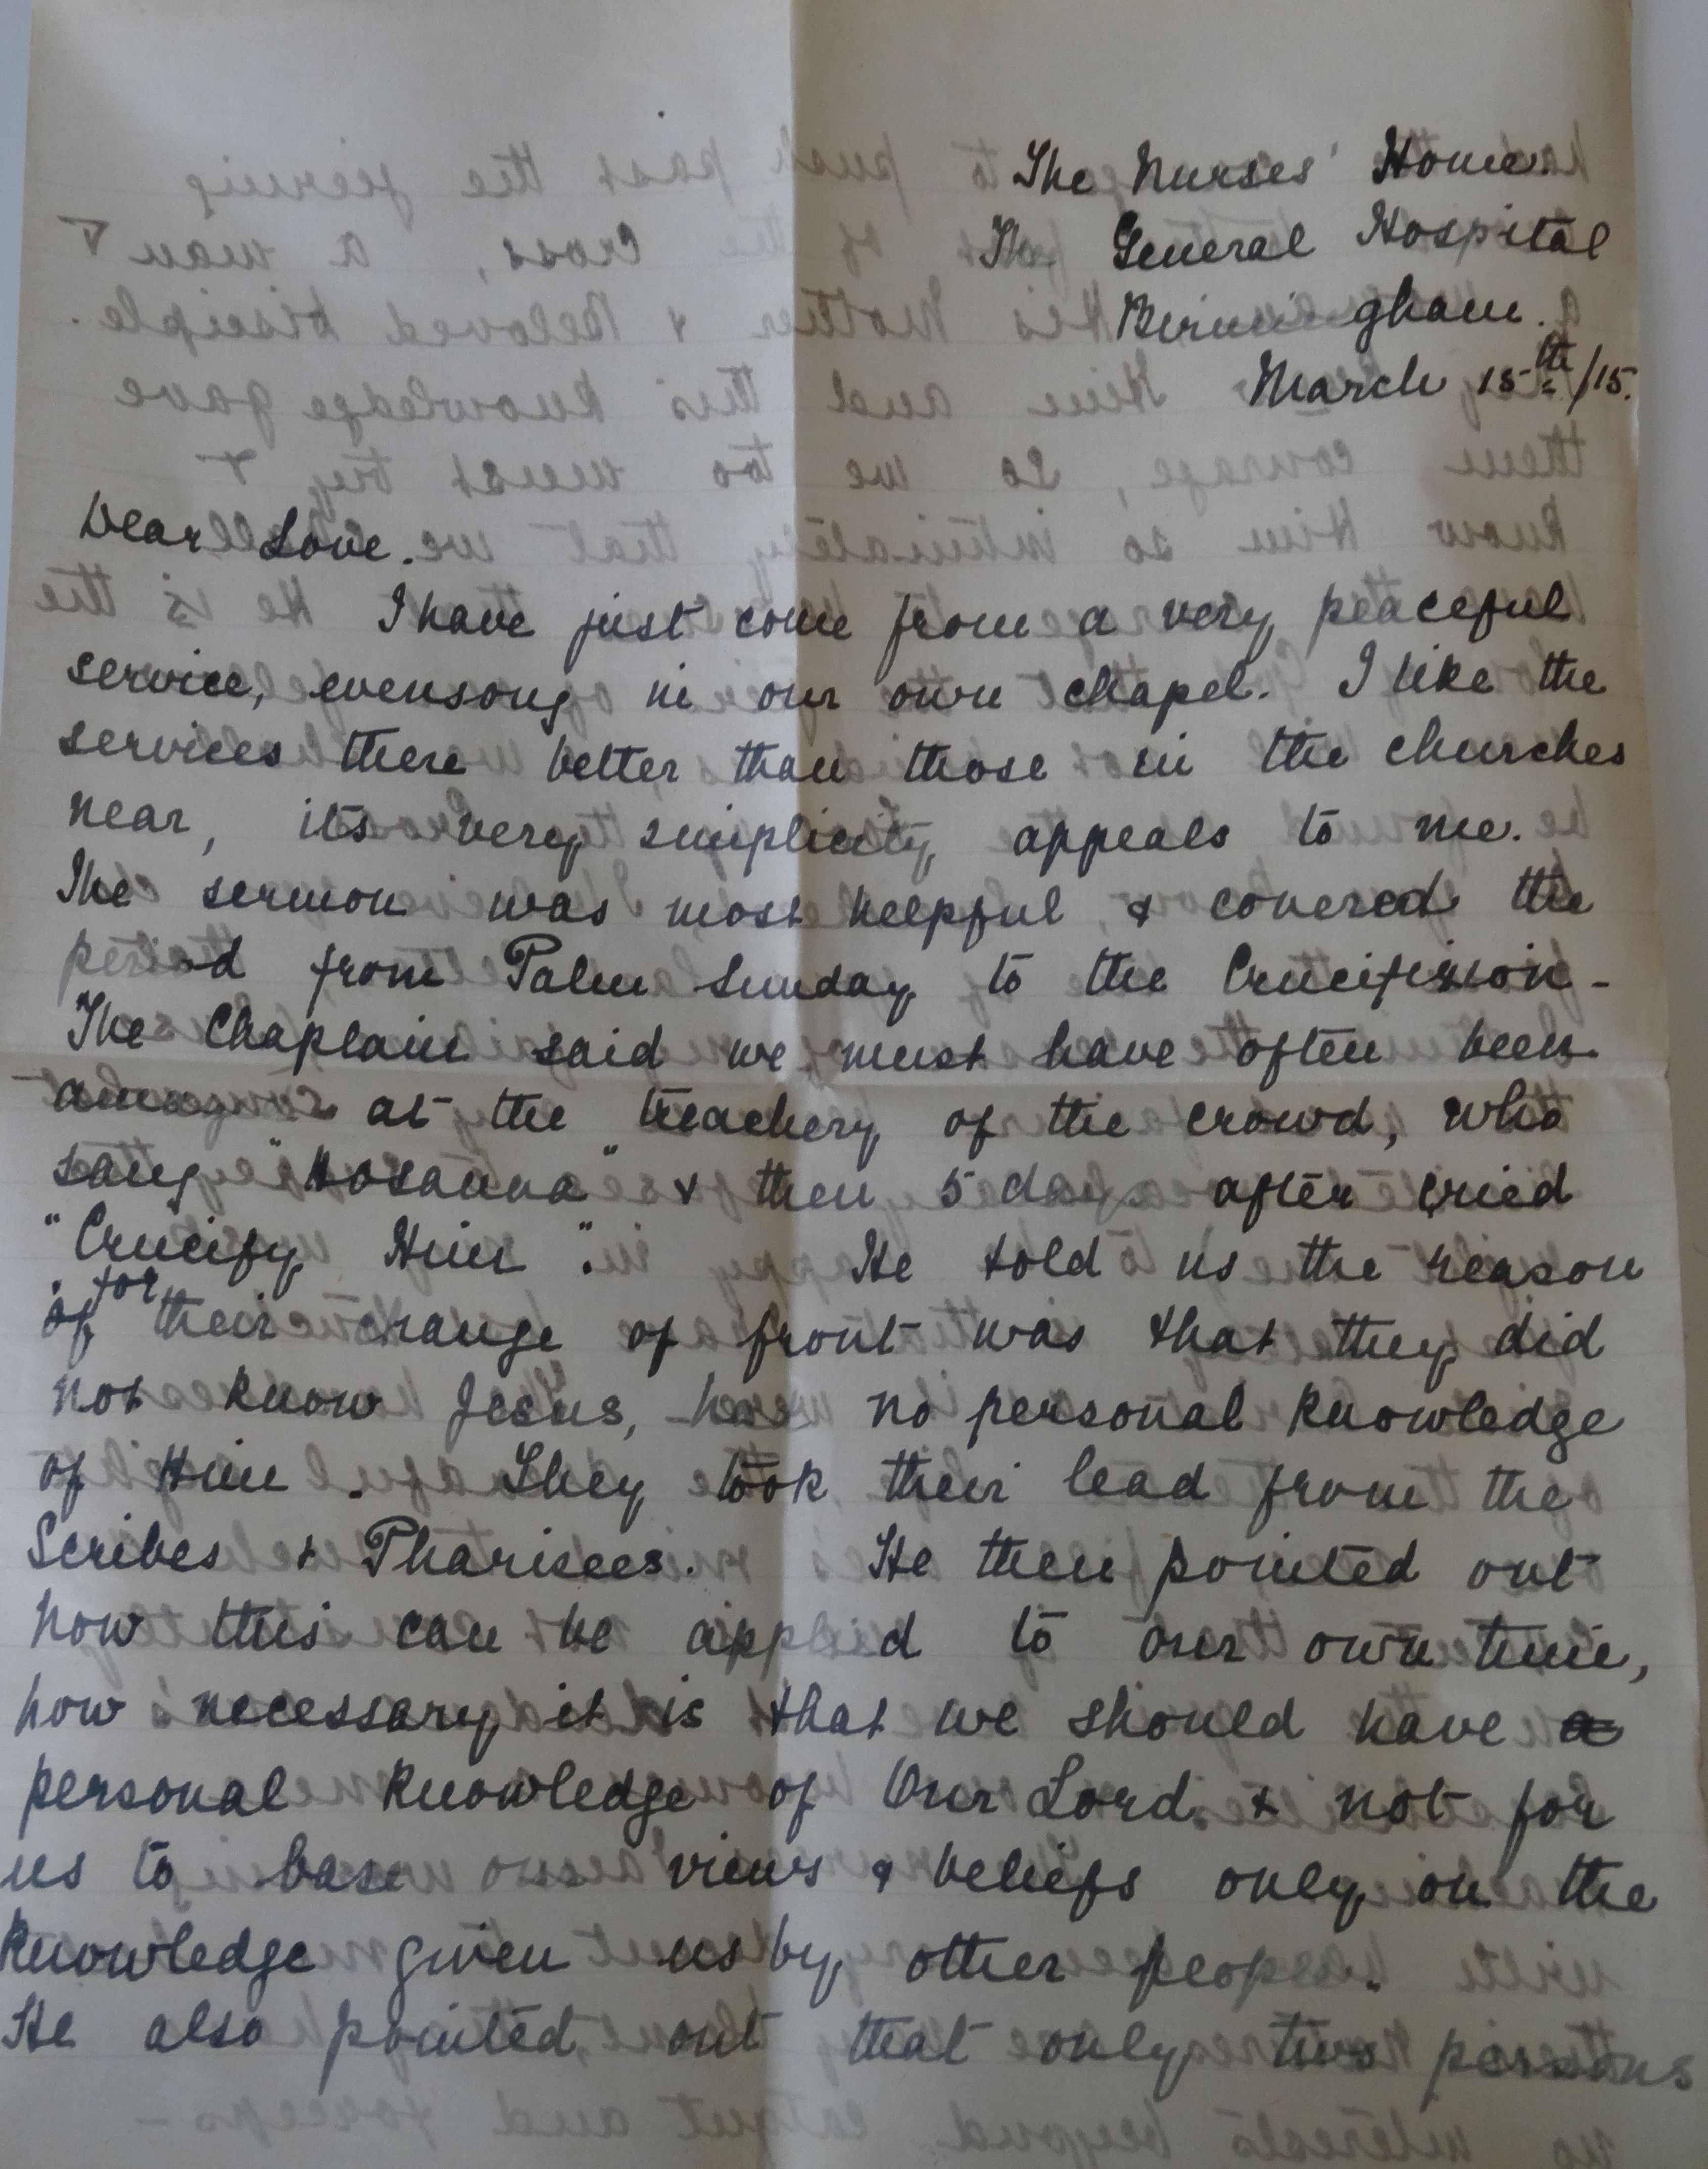 The Nurses' Home.
The General Hospital
Birmingham.
March 15th/15.
Dear Love.
I have just come from a very peaceful
service, evensong in our own chapel. I like the
services there better than those in the churches
near, its very simplicity appeals to me.
The sermon was most helpful & covered the
period from Palm Sunday to the Crucifixion -
The Chaplain said we must have often been
at the treachery of the crowd, who
sang "Hosanna" & then 5 days after cried
"Crucify Him". He told us the reason
of for their change of front was that they did
not know Jesus, have no personal knowledge
of Him. They took their lead from the
Scribes & Pharisees. He then pointed out
how this can be applied to our own time,
how necessary it is that we should have a
personal knowledge of Our Lord & not for
us to base views & beliefs only on the
knowledge given us by other people.
He also pointed out that only two persons